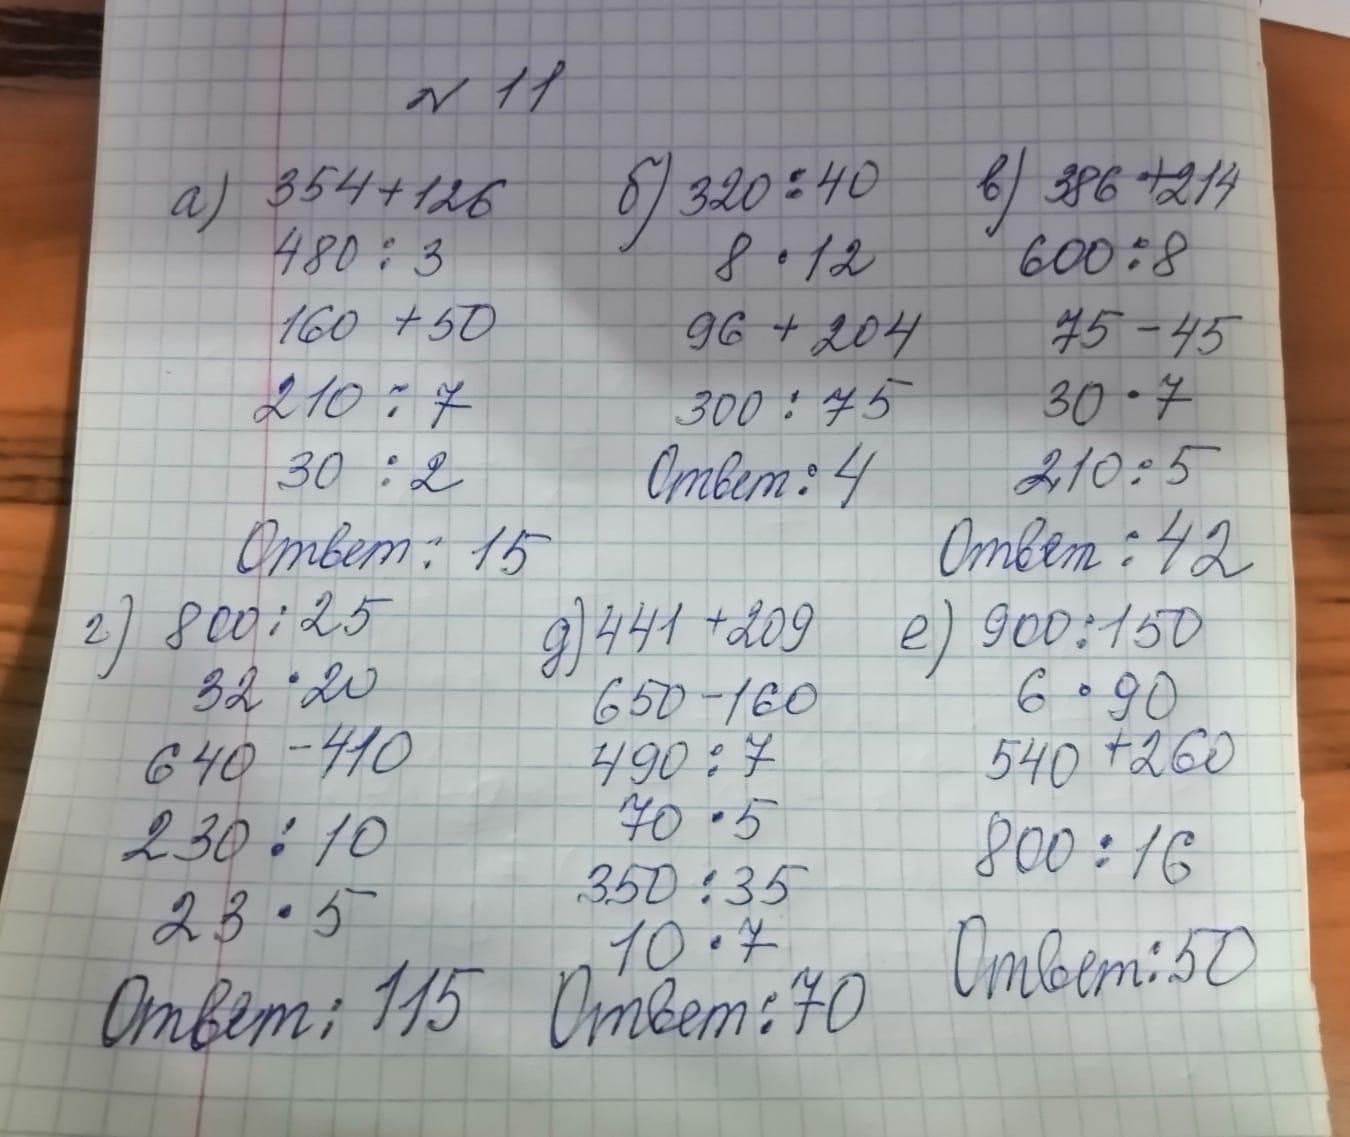 № 11
а) 354+126
480 : 3
160 + 50
210 : 7
30 : 2
Ответ: 15
б) 320 : 40
8 · 12
96 + 204
300 : 75
Ответ: 4
в) 386 + 214
600 : 8
75 - 45
30 · 7
210 : 5
Ответ: 42
г) 800 : 25
32 · 20
640 - 410
230 : 10
23 · 5
Ответ: 115
д) 441 + 209
650 - 160
490 : 7
70 · 5
350 : 35
10 · 7
Ответ: 70
е) 900 : 150
6 · 90
540 + 260
800 : 16
Ответ: 50